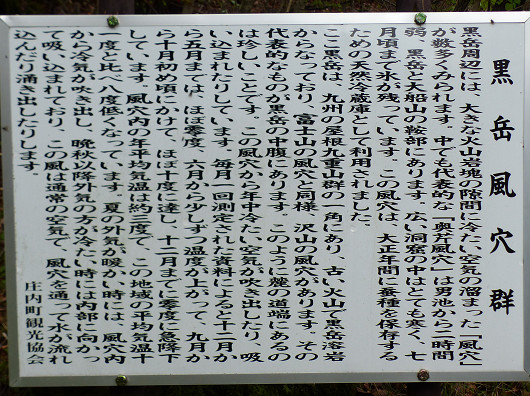 黒岳風穴群
黒岳周辺には、大きな火山岩塊の隙間に冷たい空気の溜まった「風穴」
が数多くみられます。中でも代表的な「奥芹風穴」は男池から二時間
弱、黒岳と大船山の鞍部にあります。広い洞窟の中はとても寒く、七
月頃まで氷が残っています。この風穴は、大正年間に蚕種を保存する
ための天然冷蔵庫として利用されました。
ここ黒岳は、九州の屋根九重山群の一角にあり、古い火山で黒岳溶岩
からなっており、富士山の風穴と同様、沢山の風穴があります。その
代表的なものが黒岳の中腹にあります。このように麓の道端にあるの
は珍しいことです。この風穴から年中冷たい空気が吹き出したり、吸
い込まれたりしています。毎月一回測定された資料によると十二月か
ら五月までは、ほぼ零度、六月から少しずつ温度が上がって、九月か
ら十月初め頃にかけて、ほぼ十度に達し、十二月までに零度に急降下
しています。風穴内の年平均気温は約三度で、この地域の平均気温十
一度と比べ八度低くなっています。夏の外気が暖かい時には、風穴内
から冷気が吹き出し、晩秋以降外気の方が冷たい時には内部に向かっ
て吸い込まれており、この風は通常の空気で、風穴を通って水が流れ
込んだり湧き出したりします。
庄内町観光協会